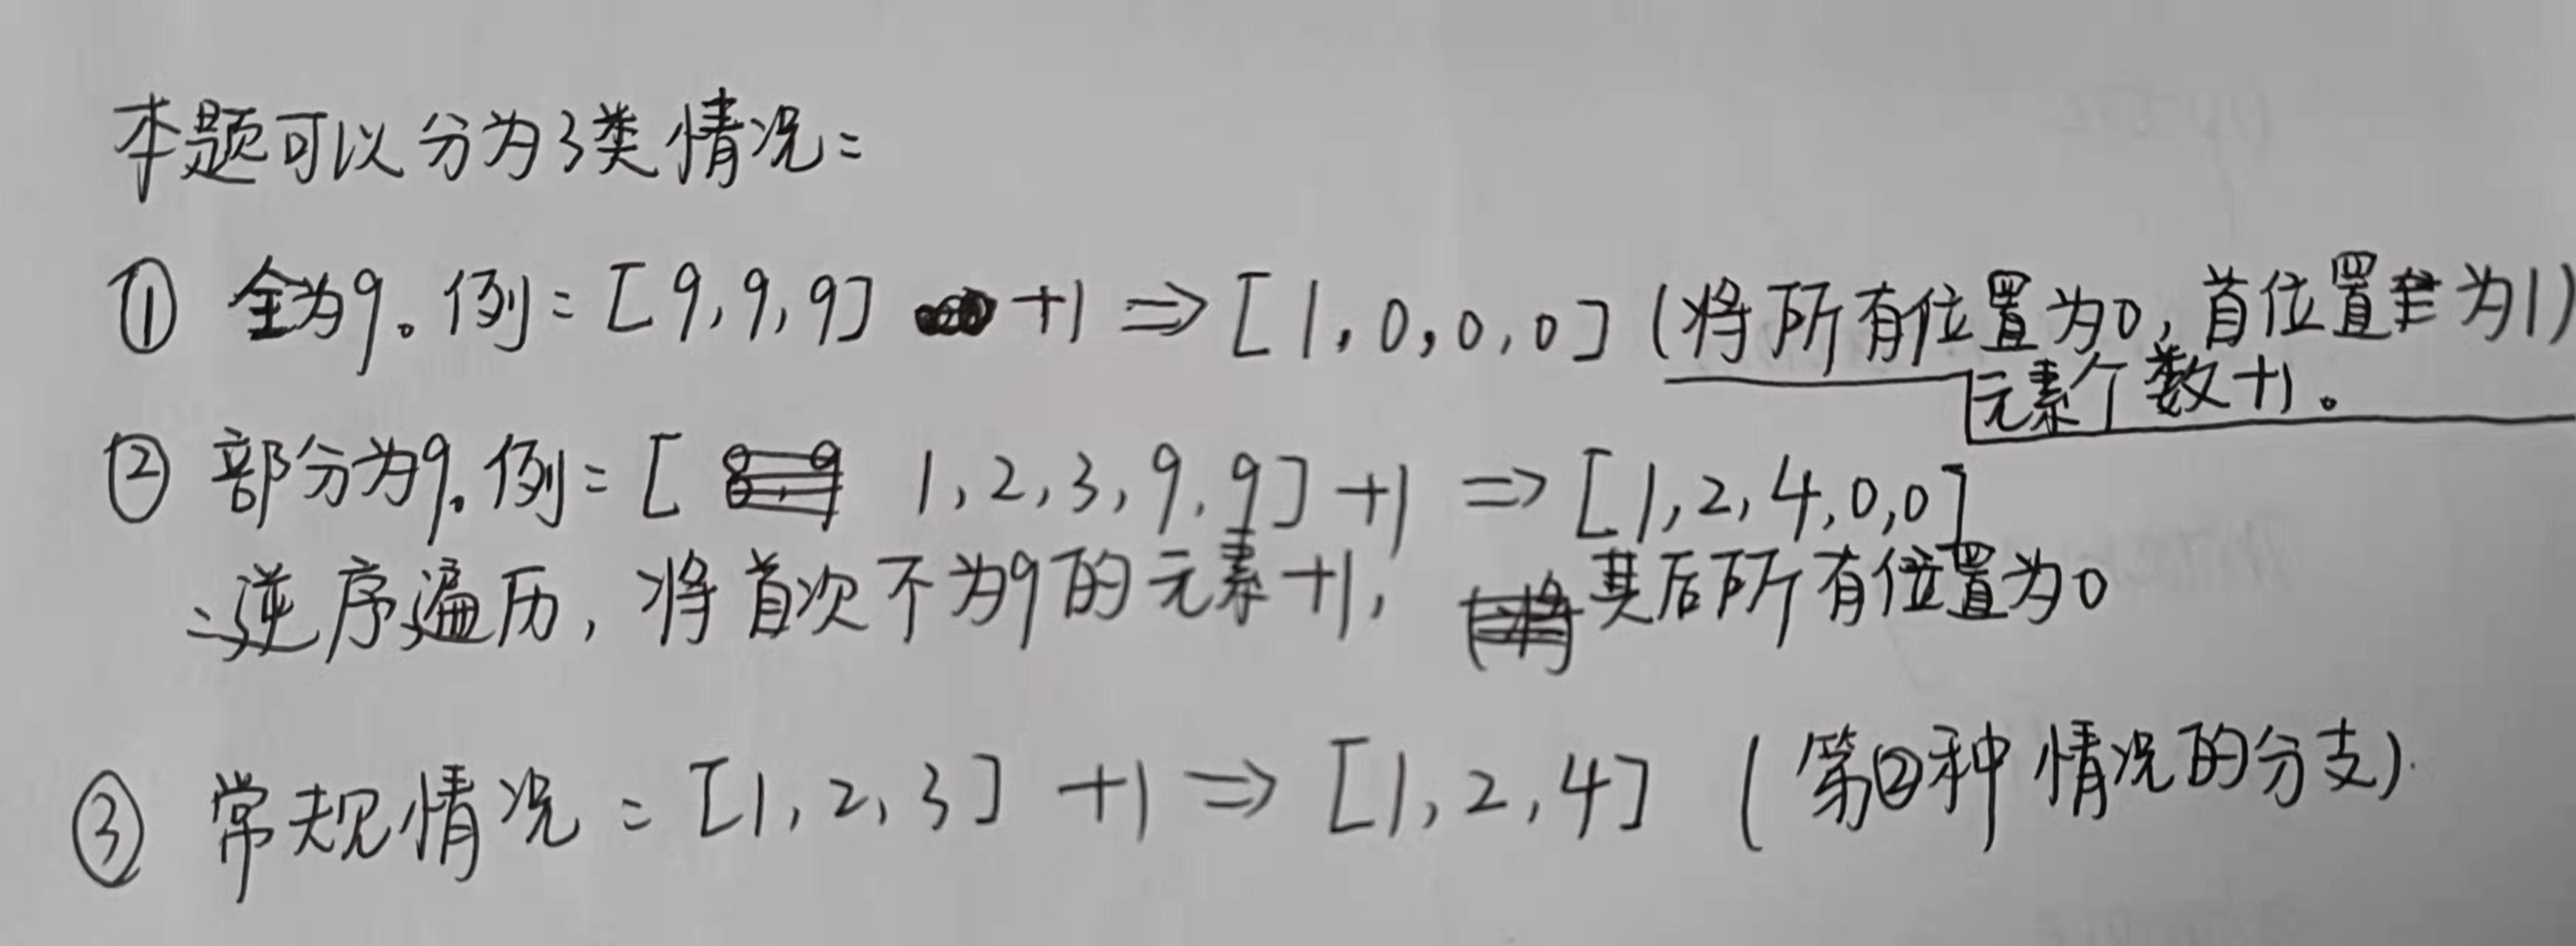 本题可以分为3类情况:
① 全为9。例:[9,9,9] +1 ⇒ [1,0,0,0] (将所有位置为0,首位置为1)
元素个数+1。
② 部分为9。例:[ 1,2,3,9,9]+1 ⇒ [1,2,4,0,0]
:逆序遍历,将首次不为9的元素+1, 其后所有位置为0
③ 常规情况:[1,2,3] +1 ⇒ [1,2,4] (第②种情况的分支).